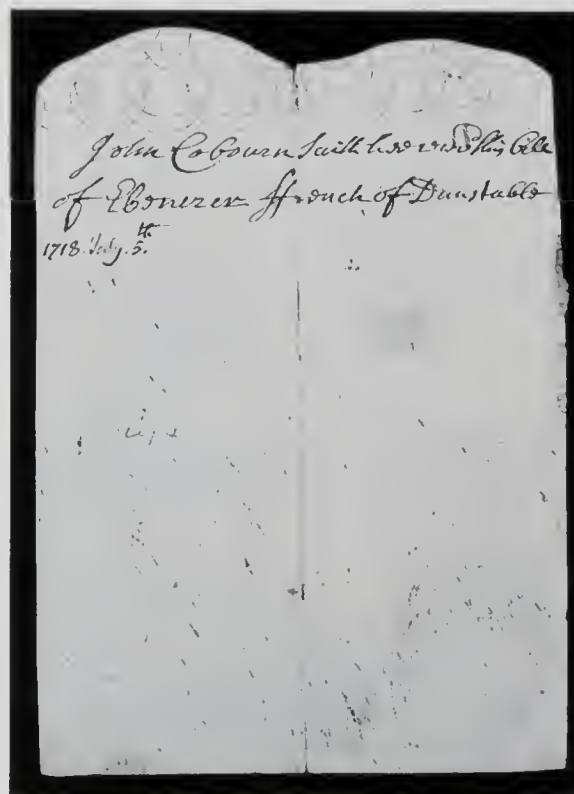 John Cobourn Saith hee recd this bill
of Ebenezer ffrench of Dunstable
1718. July. 5.th